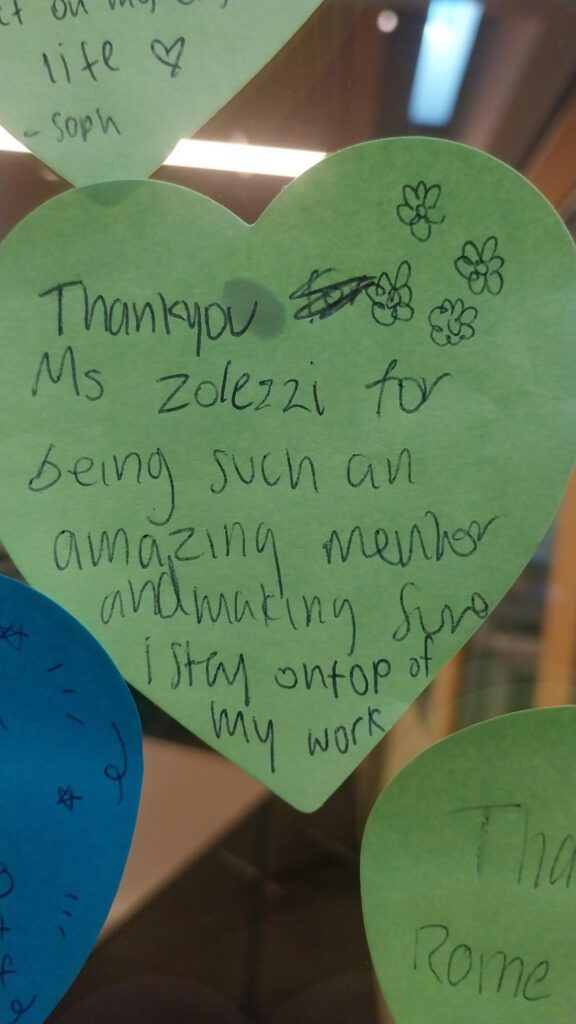 life ♡
- Soph
Thankyou
Ms Zolezzi for
being such an
amazing mentor
and making sure
i stay ontop of
my work
Tha
Rome